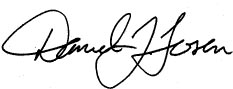 Daniel J Losen